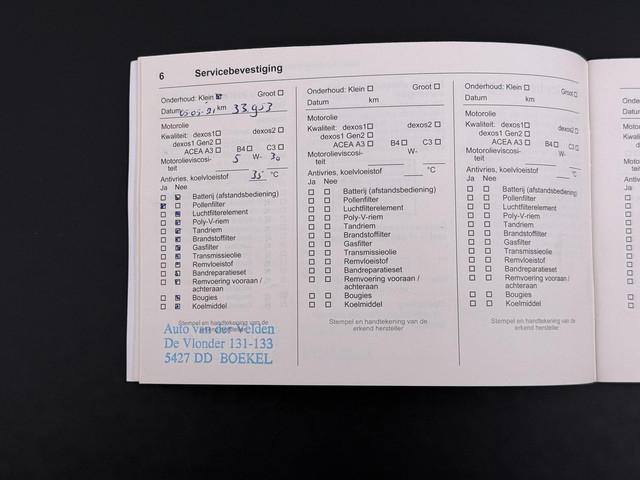 6 Servicebevestiging
Onderhoud: Klein Groot
Datum 05-05-21 km 33.953
Motorolie
Kwaliteit: dexos1 dexos2
dexos1 Gen2
ACEA A3 B4 C3
Motorolieviscosi- 5 W- 30
teit
Antivries, koelvloeistof 35 °C
Ja Nee
Batterij (afstandsbediening)
Pollenfilter
Luchtfilterelement
Poly-V-riem
Tandriem
Brandstoffilter
Gasfilter
Transmissieolie
Remvloeistof
Bandreparatieset
Remvoering vooraan /
achteraan
Bougies
Koelmiddel
Stempel en handtekening van de
erkend hersteller
Auto van der Velden
De Vlonder 131-133
5427 DD BOEKEL
Onderhoud: Klein Groot
Datum km
Motorolie
Kwaliteit: dexos1 dexos2
dexos1 Gen2
ACEA A3 B4 C3
Motorolieviscosi- W-
teit
Antivries, koelvloeistof °C
Ja Nee
Batterij (afstandsbediening)
Pollenfilter
Luchtfilterelement
Poly-V-riem
Tandriem
Brandstoffilter
Gasfilter
Transmissieolie
Remvloeistof
Bandreparatieset
Remvoering vooraan /
achteraan
Bougies
Koelmiddel
Stempel en handtekening van de
erkend hersteller
Onderhoud: Klein Groot
Datum km
Motorolie
Kwaliteit: dexos1 dexos2
dexos1 Gen2
ACEA A3 B4 C3
Motorolieviscosi- W-
teit
Antivries, koelvloeistof °C
Ja Nee
Batterij (afstandsbediening)
Pollenfilter
Luchtfilterelement
Poly-V-riem
Tandriem
Brandstoffilter
Gasfilter
Transmissieolie
Remvloeistof
Bandreparatieset
Remvoering vooraan /
achteraan
Bougies
Koelmiddel
Stempel en handtekening van de
erkend hersteller